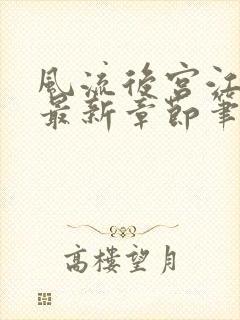 風流後宮江
最新章節筆
高樓望月